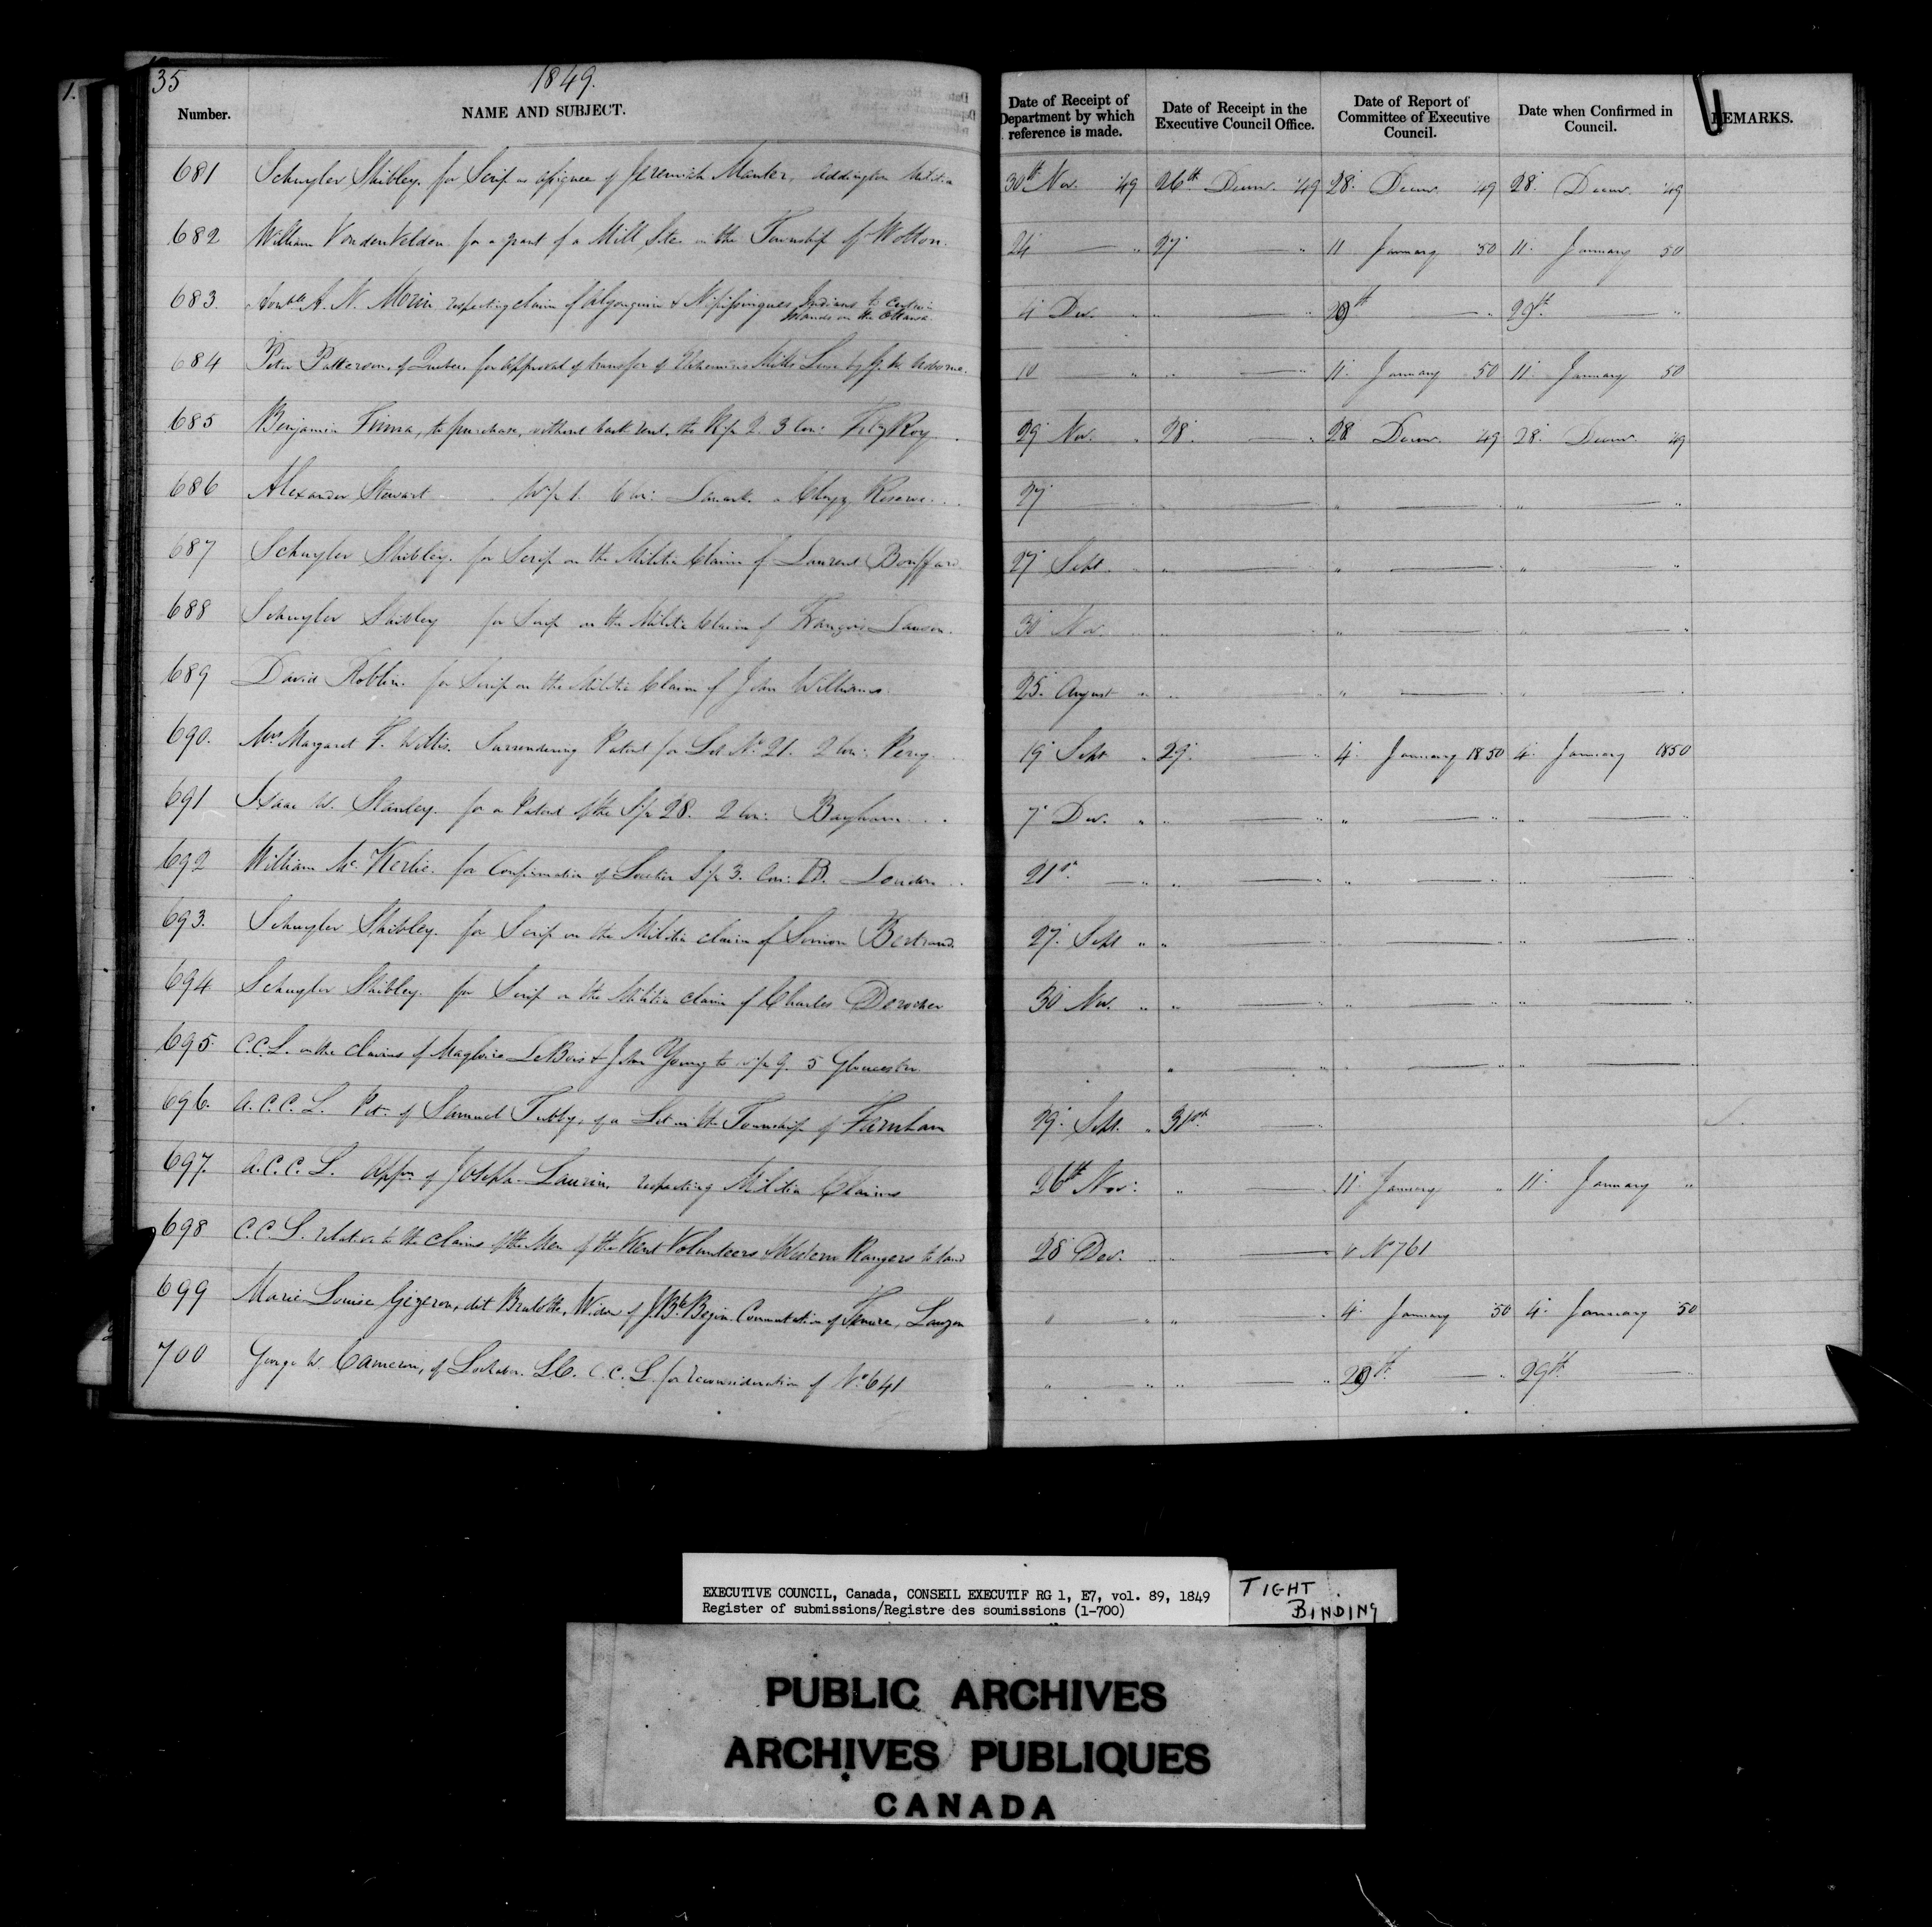 35
1849.
Number. NAME AND SUBJECT. Date of Receipt of Department by which reference is made. Date of Receipt in the Executive Council Office. Date of Report of Committee of Executive Council. Date when Confirmed in Council. REMARKS.
681 Schuyler Shibley, for Scrip as assignee of Jeremiah Manter, Addington Militia 30th Nov. '49 26th Decmr. '49 28. Decmr. '49 28. Decmr. '49
682 William VondenVelden for a grant of a Mill Site in the Township of Wotton. 24 — " 27. — " 11 January '50 11. January 50
683. Honble A. N. Morin respecting claim of Algonquin & Nipissingues Indians to certain Islands on the Ottawa. 4 Dec. " " — " 29th — " 29th — "
684 Peter Patterson, of Quebec, for approval of transfer of Mills by 10 — " " — " 11. January 50 11. January 50
685 Benjamin to purchase, without back rent, the R½ 2. 3 Con: FitzRoy 29 Nov. " 28. — " 28 Decmr. '49 28. Decmr. '49
686 Alexander Stewart W½ 1. 6 Con: Lanark a Clergy Reserve 27 " — " " — " " — "
687 Schuyler Shibley. for Scrip on the Militia Claim of Laurent Bouffard 27 Sept. " " — " " — " " — "
688 Schuyler Shibley for Scrip on the Militia Claim of François 30 Nov. " " — " " — " " — "
689 David Roblin. for Scrip on the Militia Claim of John Williams. 25. August " " — " " — " " — "
690. Mrs Margaret F. Willis. Surrendering Patent for Lot No 21. 2 Con: Percy 19 Sept " 29. — " 4. January 1850 4. January 1850
691 Isaac W. Stanley. for a Patent of the S½ 28. 2 Con: Bayham 7 Dec. " " — " " — " " — "
692 William McKerlie. for Confirmation of Location S½ 3. Con: B. London 21st — " " — " " — " " — "
693. Schuyler Shibley. for Scrip on the Militia claim of Simon Bertrand. 27. Sept " " — " " — " " — "
694 Schuyler Shibley. for Scrip on the Militia claim of Charles Derocher 30 Nov. " " — " " — " " — "
695. C.C.L. on the claims of Magloire LeBois & John Young to 9. 5 Gloucester. " — " " — " " — "
696. A.C.C.L. Pet. of Samuel Tubby, of a Lot in the Township of Farnham 29. Sept. " 31st — "
697. A.C.C.L. Appn. of Joseph Laurin, respecting Militia Claims 26th Nov: " — " 11. January " 11. January "
698 C.C.L. relative to the claims of the Men of the Kent Volunteers Western Rangers to land 28 Dec. " " — v No 761
699 Marie Louise dit Brulotte, Widow of J. Bte Begin. Commutation of Tenure, Lauzon " — " " 4. January '50 4. January '50
700 George W. Cameron, of Lochaber. L.C. C.C.L. for reconsideration of No. 641 " — " " — " 29th — " 29th — "
EXECUTIVE COUNCIL, Canada, CONSEIL EXECUTIF RG 1, E7, vol. 89, 1849
Register of submissions/Registre des soumissions (1-700)
TIGHT
BINDING
PUBLIC ARCHIVES
ARCHIVES PUBLIQUES
CANADA